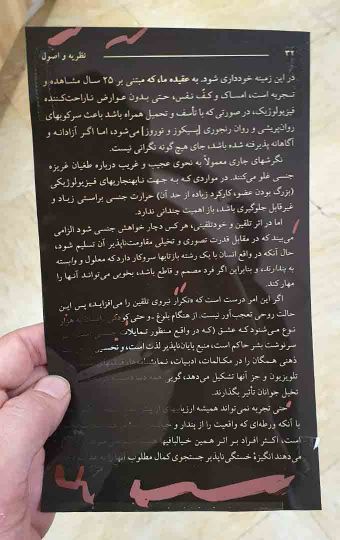 ۳۲ نظریه و اصول
در این زمینه خودداری شود. به عقیده ما، که مبتنی بر ۲۵ سال مشاهده و
تجربه است، امساک و کفّ نفس، حتی بدون عوارض ناراحت‌کننده
فیزیولوژیک، در صورتی که با تأسف و تحمیل همراه باشد باعث سرکوبهای
روان‌پریشی و روان رنجوری [پسیکوز و نوروز] می‌شود، اما اگر آزادانه و
آگاهانه پذیرفته شده باشد، جای هیچ گونه نگرانی نیست.
نگرشهای جاری معمولاً به نحوی عجیب و غریب درباره طغیان غریزه
جنسی غلو می‌کنند. در مواردی که به جهت نابهنجاریهای فیزیولوژیکی
(بزرگ بودن عضو، کارکرد زیاده از حد آن) حرارت جنسی براستی زیاد و
غیرقابل جلوگیری باشد، باز اهمیت چندانی ندارد.
اما در اثر تلقین و خودتلقینی، هر کس دچار خواهش جنسی شود الزامی
می‌بیند که در مقابل قدرت تصوری و تخیلی مقاومت‌ناپذیر آن تسلیم شود،
حال آنکه در واقع انسان با یک رشته بازتابها سروکار دارد که معلول و وابسته
به پندارند، و بنابراین اگر فرد مصمم و قاطع باشد، بخوبی می‌تواند آنها را
مهار کند.
اگر این امر درست است که «تکرار نیروی تلقین را می‌افزاید» پس این
حالت روحی تعجب‌آور نیست. از هنگام بلوغ ـ و حتی کودکی ـ انسان به هزار
نوع می‌شنود که عشق (که در واقع منظور تمایلات
سرنوشت بشر حاکم است، منبع پایان‌ناپذیر لذت است، و نخستین
ذهنی همگان را در مکالمات، ادبیات، نمایشنامه‌ها، فیلمهای
تلویزیون و جز آنها تشکیل می‌دهد، گویی همه
تخیل جوانان تأثیر بگذارند.
حتی تجربه نمی‌تواند همیشه ارزیابیهای
با آنکه ورطه‌ای که واقعیت را از پندار و
است، اکثر افراد بر اثر همین خیالبافیها
می‌دهند انگیزهٔ خستگی‌ناپذیر جستجوی کمال مطلوب آنها